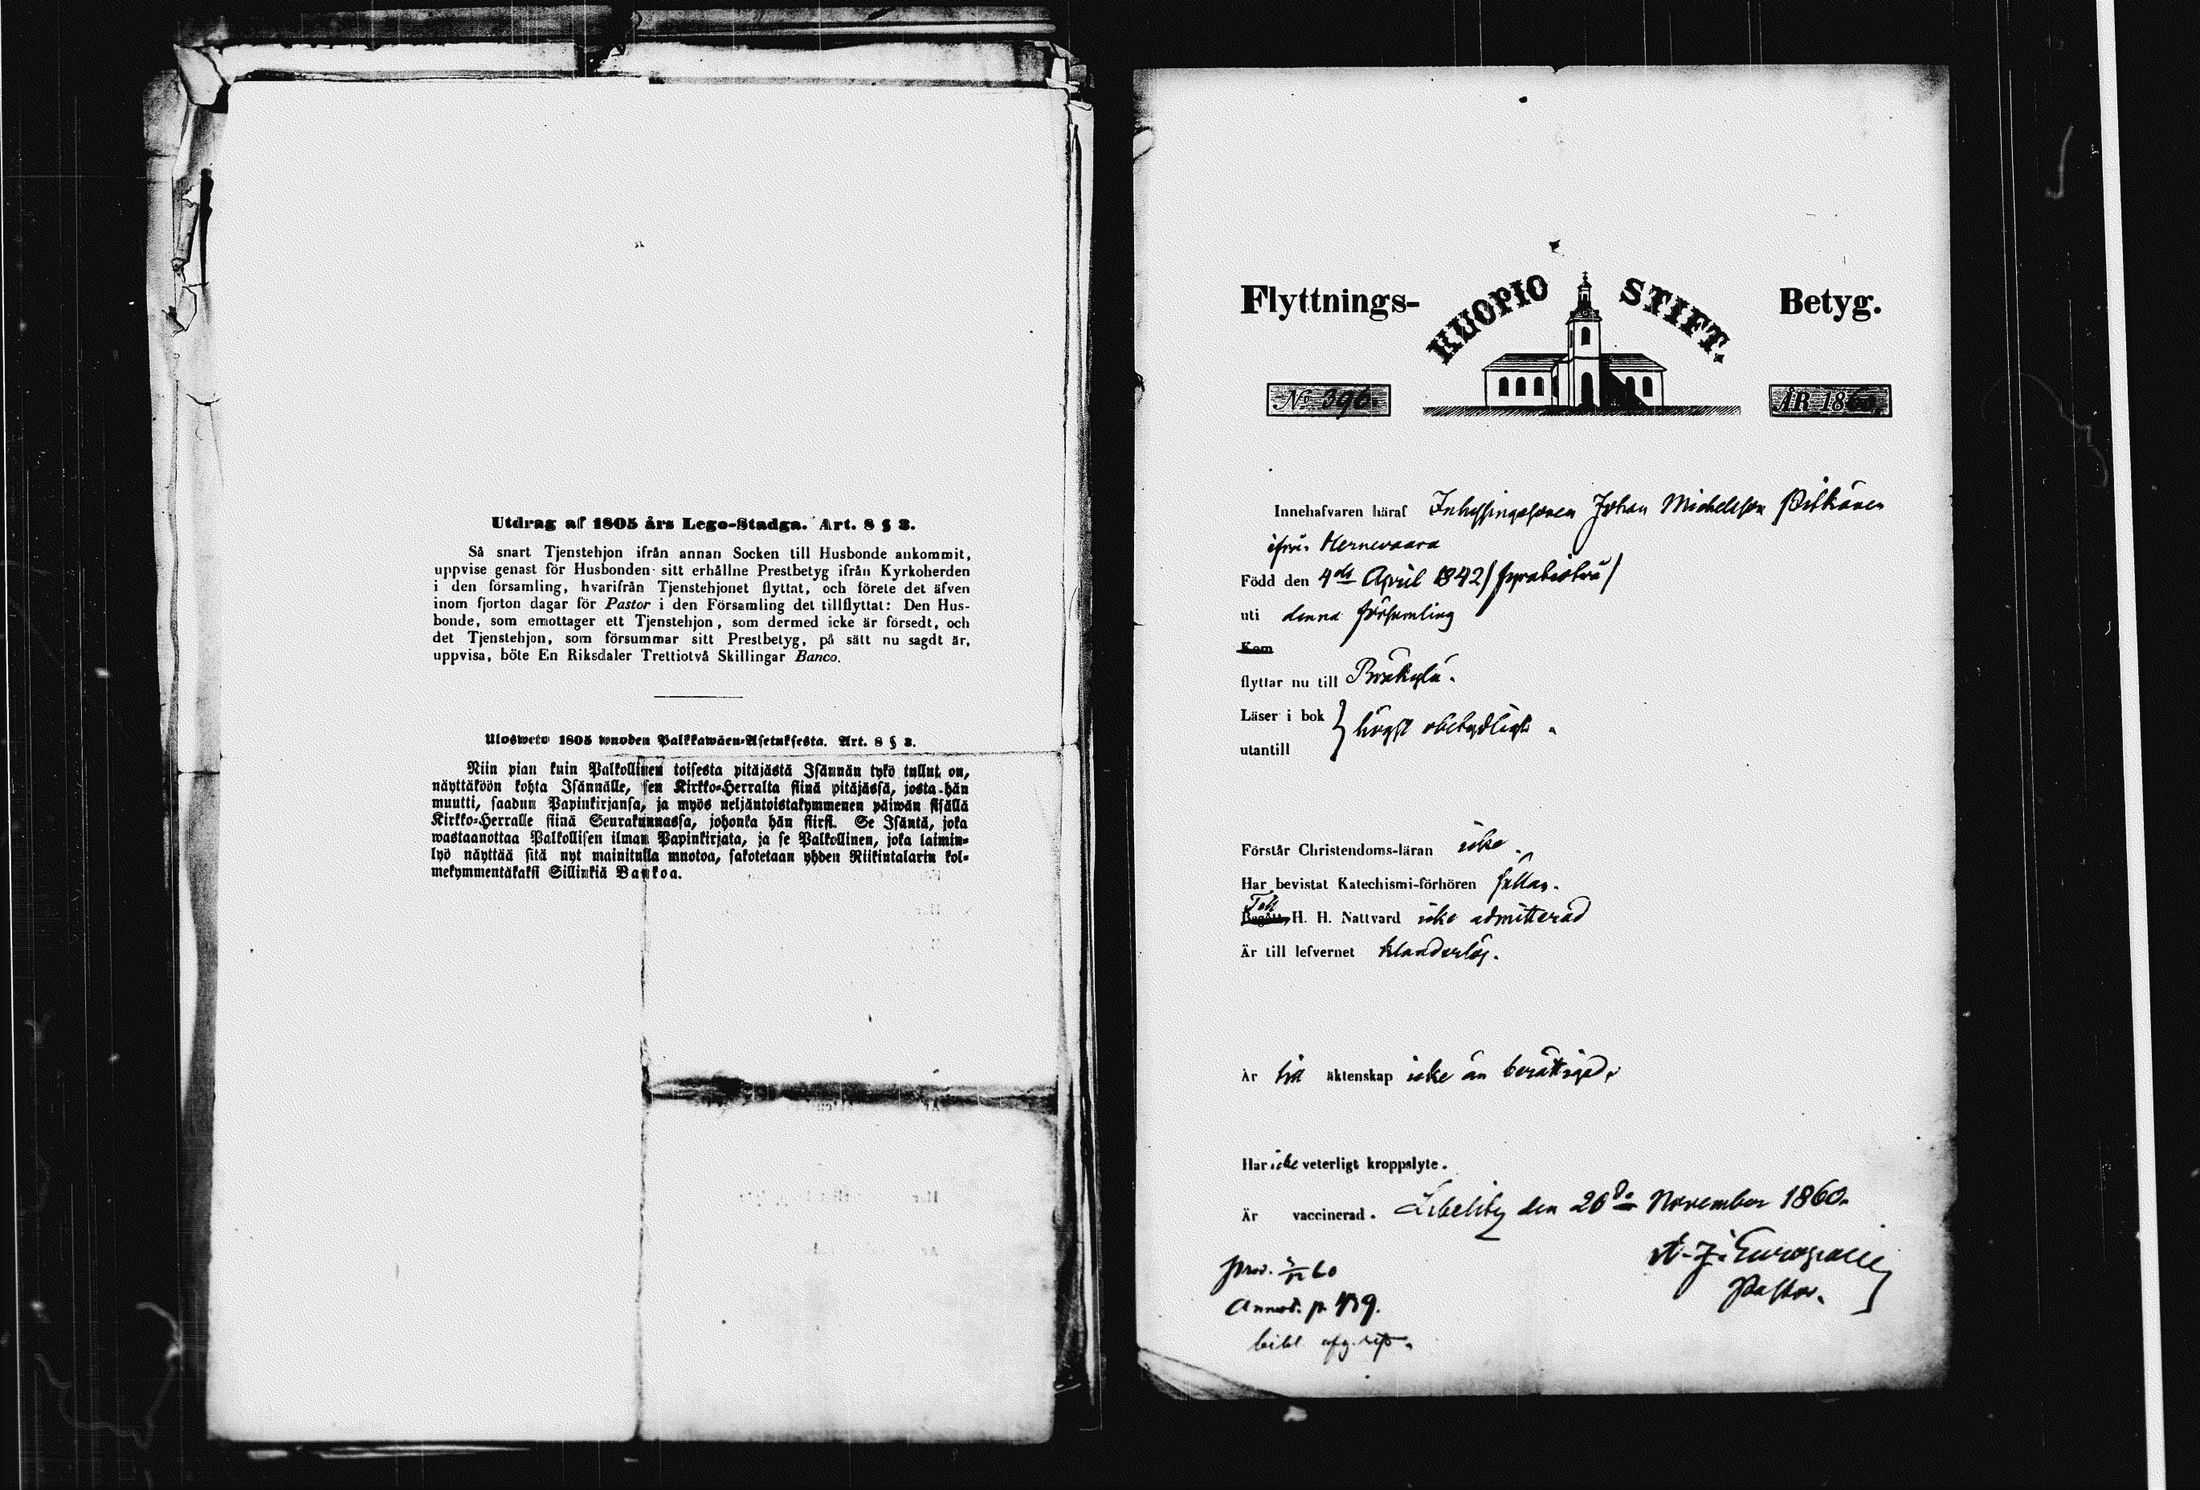 Utdrag af 1805 års Lego-Stadga. Art. 8 § 3.
Så snart Tjenstehjon ifrån annan Socken till Husbonde ankommit,
uppvise genast för Husbonden sitt erhållne Prestbetyg ifrån Kyrkoherden
i den församling, hvarifrån Tjenstehjonet flyttat, och förete det äfven
inom fjorton dagar för Pastor i den Församling det tillflyttat: Den Hus-
bonde, som emottager ett Tjenstehjon, som dermed icke är försedt, och
det Tjenstehjon, som försummar sitt Prestbetyg, på sätt nu sagdt är,
uppvisa, böte En Riksdaler Trettiotvå Skillingar Banco.
Ulosweto 1805 wuoden Palkkawäen-Asetuksesta. Art. 8 § 3.
Niin pian kuin Palkollinen toisesta pitäjästä Isännän tykö tullut on,
näyttäköön kohta Isännälle, sen Kirkko-Herralta siinä pitäjässä, josta hän
muutti, saadun Papinkirjansa, ja myös neljäntoistakymmenen päiwän sisällä
Kirkko-Herralle siinä Seurakunnassa, johonka hän siirsi. Se Isäntä, joka
wastaanottaa Palkollisen ilman Papinkirjata, ja se Palkollinen, joka laimin-
lyö näyttää sitä nyt mainitulla muotoa, sakotetaan yhden Riikintalarin kol-
mekymmentäkaksi Sillinkiä Bankoa.
Flyttnings- KUOPIO STIFT. Betyg.
No 396. ÅR 1860.
Innehafvaren häraf Inhysingesonen Johan Michelsson Pitkänen
ifrån Hernevaara
Född den 4de April 1842 / fyratiotvå /
uti denna församling
Kom
flyttar nu till Bräkylä.
Läser i bok } högst obetydligt.
utantill
Förstår Christendoms-läran icke.
Har bevistat Katechismi-förhören sällan.
Till
Begått H. H. Nattvard icke admitterad
Är till lefvernet klanderlös.
Är till äktenskap icke än berättigad.
Har icke veterligt kroppslyte.
Är vaccinerad. Libelitz den 26de November 1860.
A. J. Europaeus
Pastor.
Annot. p.